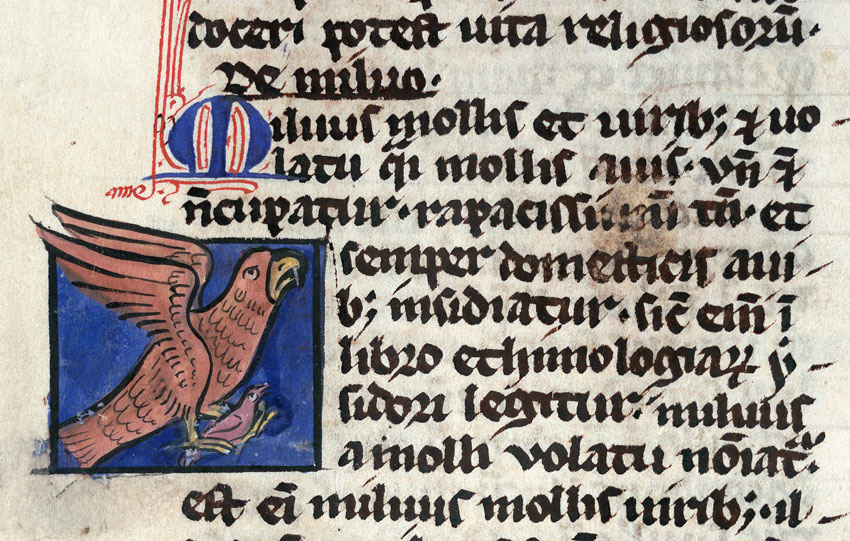 doceri potest uita religiosoꝝ̄.
De miluo.
Miluus mollis et uirib; ⁊ uo
latu q̄i mollis auis. vn̄ ⁊
n̄cupatur. rapacissimū tn̄. et
semper domesticis aui
b; insidiatur. sic̄ eni̅ ī
libro ethimologiaꝝ ẏ
sidori legitur. miluus
a molli volatu noīatᷣ.
est ei̅ miluus mollis uirib;. il